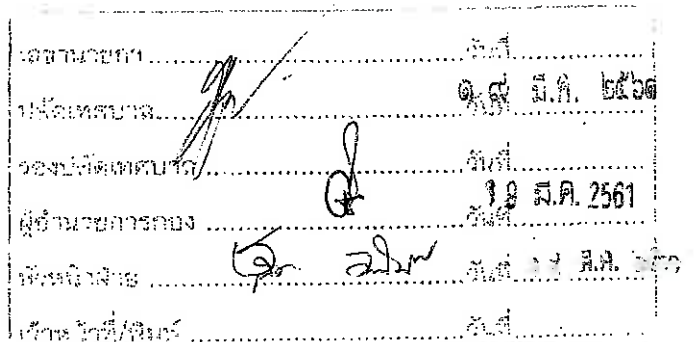 เลขานายกฯ ........................ วันที่ ................
ปลัดเทศบาล ........................ วันที่ ๑๙ มี.ค. ๒๕๖๑
รองปลัดเทศบาล ........................ วันที่ ................
ผู้อำนวยการกอง ........................ วันที่ 19 มี.ค. 2561
หัวหน้าฝ่าย ........................ วันที่ มี.ค.
เจ้าหน้าที่/พิมพ์ ........................ วันที่ ................